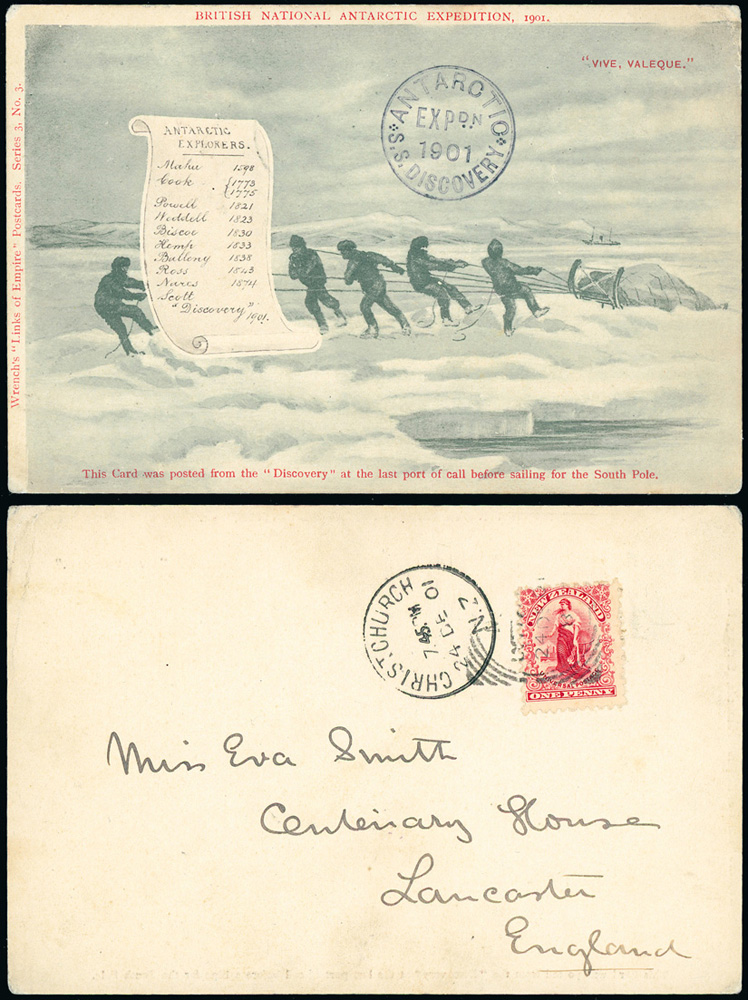 BRITISH NATIONAL ANTARCTIC EXPEDITION, 1901.
"VIVE, VALEQUE."
Wrench's "Links of Empire" Postcards. Series 3, No. 3.
ANTARCTIC EXPDN 1901
S.S. DISCOVERY
ANTARCTIC
EXPLORERS.
Mahu 1598
Cook {1773
{1775
Powell 1821
Weddell 1823
Biscoe 1830
Kemp 1833
Balleny 1838
Ross 1843
Nares 1874
Scott
"Discovery"
1901.
This Card was posted from the "Discovery" at the last port of call before sailing for the South Pole.
CHRISTCHURCH N.Z
24 DE 01
NEW ZEALAND
UNIVERSAL POSTAGE
ONE PENNY
Miss Eva Smith
Centenary House
Lancaster
England